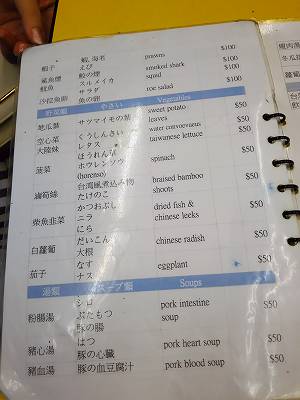 蝦, 海老 prawns $100
蝦子 えび
鯊魚煙 鮫の燻 smoked shark $100
魷魚 スルメイカ squid $100
沙拉魚卵 サラダ 魚の卵 roe salad $100
野菜類 やさい Vegetables
地瓜葉 サツマイモの葉 sweet potato leaves $50
空心菜 くうしんさい water convovaeus $50
大陸妹 レタス taiwanese lettuce $50
菠菜 ほうれん草 ホウレンソウ (horenso) spinach $50
滷筍絲 台湾風煮込み物 たけのこ braised bamboo shoots $50
柴魚韭菜 かつおぶし ニラ にら dried fish & chinese leeks $50
白蘿蔔 だいこん 大根 chinese radish $50
茄子 なす ナス eggplant $50
湯類 スープ類 Soups
粉腸湯 シロ ぶたもつ 豚の腸 pork intestine soup $50
豬心湯 はつ 豚の心臓 pork heart soup $50
豬血湯 豚の血豆腐汁 pork blood soup $50